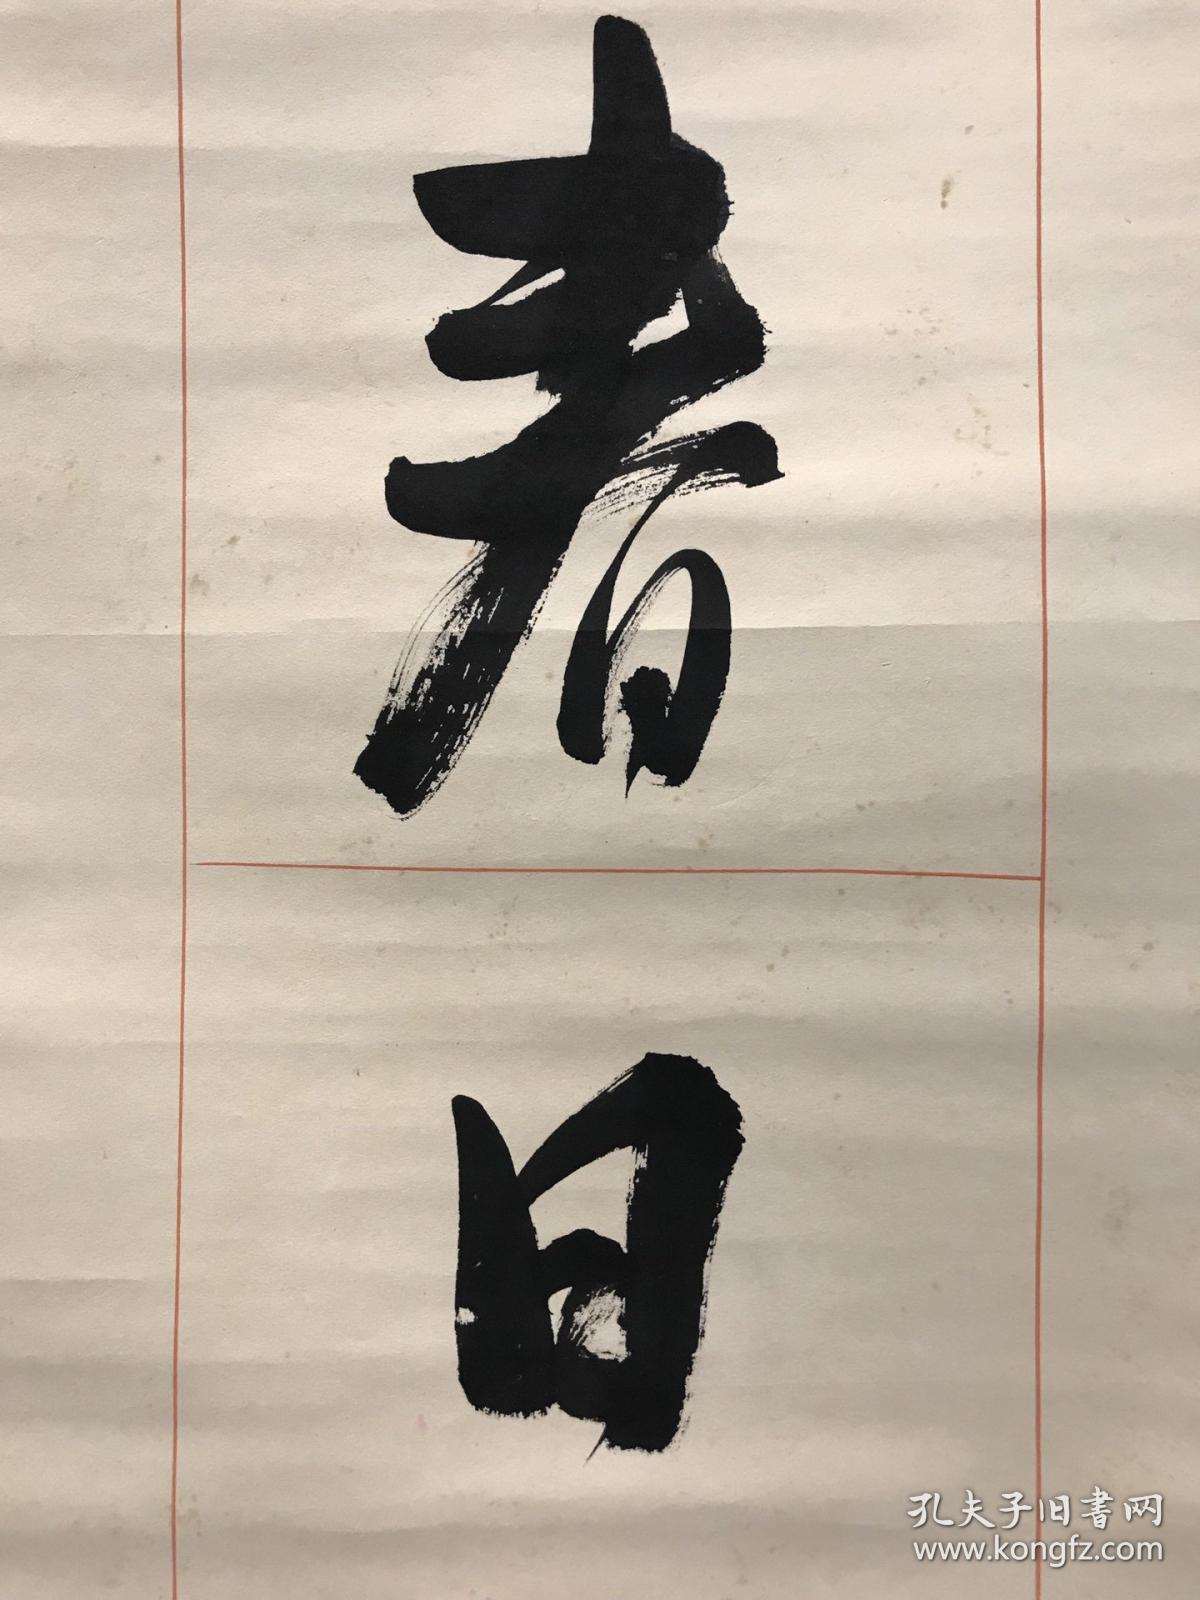 春
日
孔夫子旧書网
www.kongfz.com